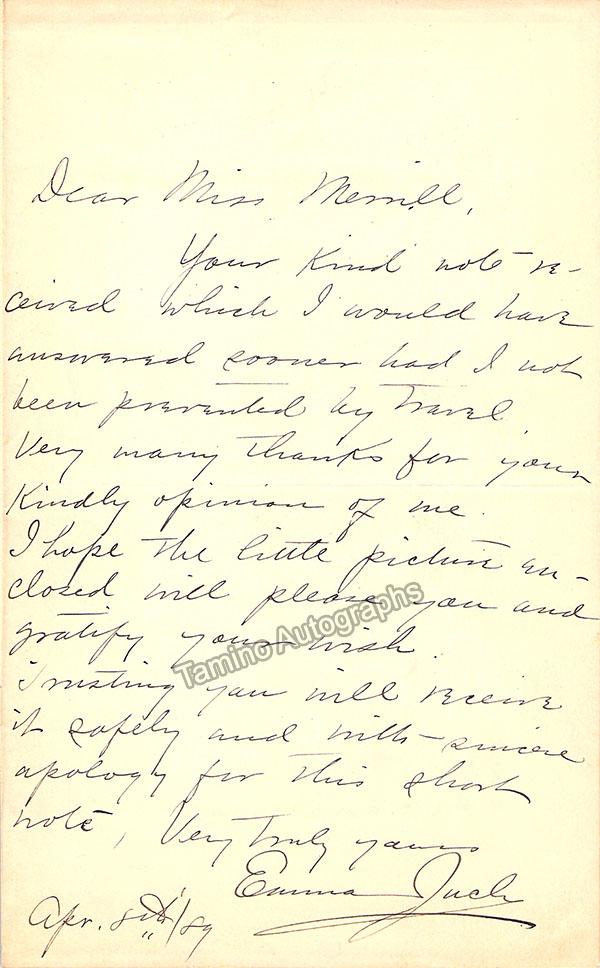 Dear Miss Merrill,
Your Kind note re-
ceived which I would have
answered sooner had I not
been prevented by travel.
Very many thanks for your
Kindly opinion of me.
I hope the little picture en-
closed will please you and
gratify your wish.
Tamino Autographs
Trusting you will receive
it safely and with sincere
apology for this short
note, Very Truly yours
Emma Juch
Apr. 8th/89